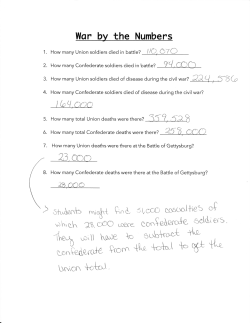 War by the Numbers
1. How many Union soldiers died in battle? 110,070
2. How many Confederate soldiers died in battle? 94,000
3. How many Union soldiers died of disease during the civil war? 224,586
4. How many Confederate soldiers died of disease during the civil war?
164,000
5. How many total Union deaths were there? 359,528
6. How many total Confederate deaths were there? 258,000
7. How many Union deaths were there at the Battle of Gettysburg?
23,000
8. How many Confederate deaths were there at the Battle of Gettysburg?
28,000
Students might find 51,000 casualties of
which 28,000 were confederate soldiers.
They will have to subtract the
confederate from the total to get the
union total.